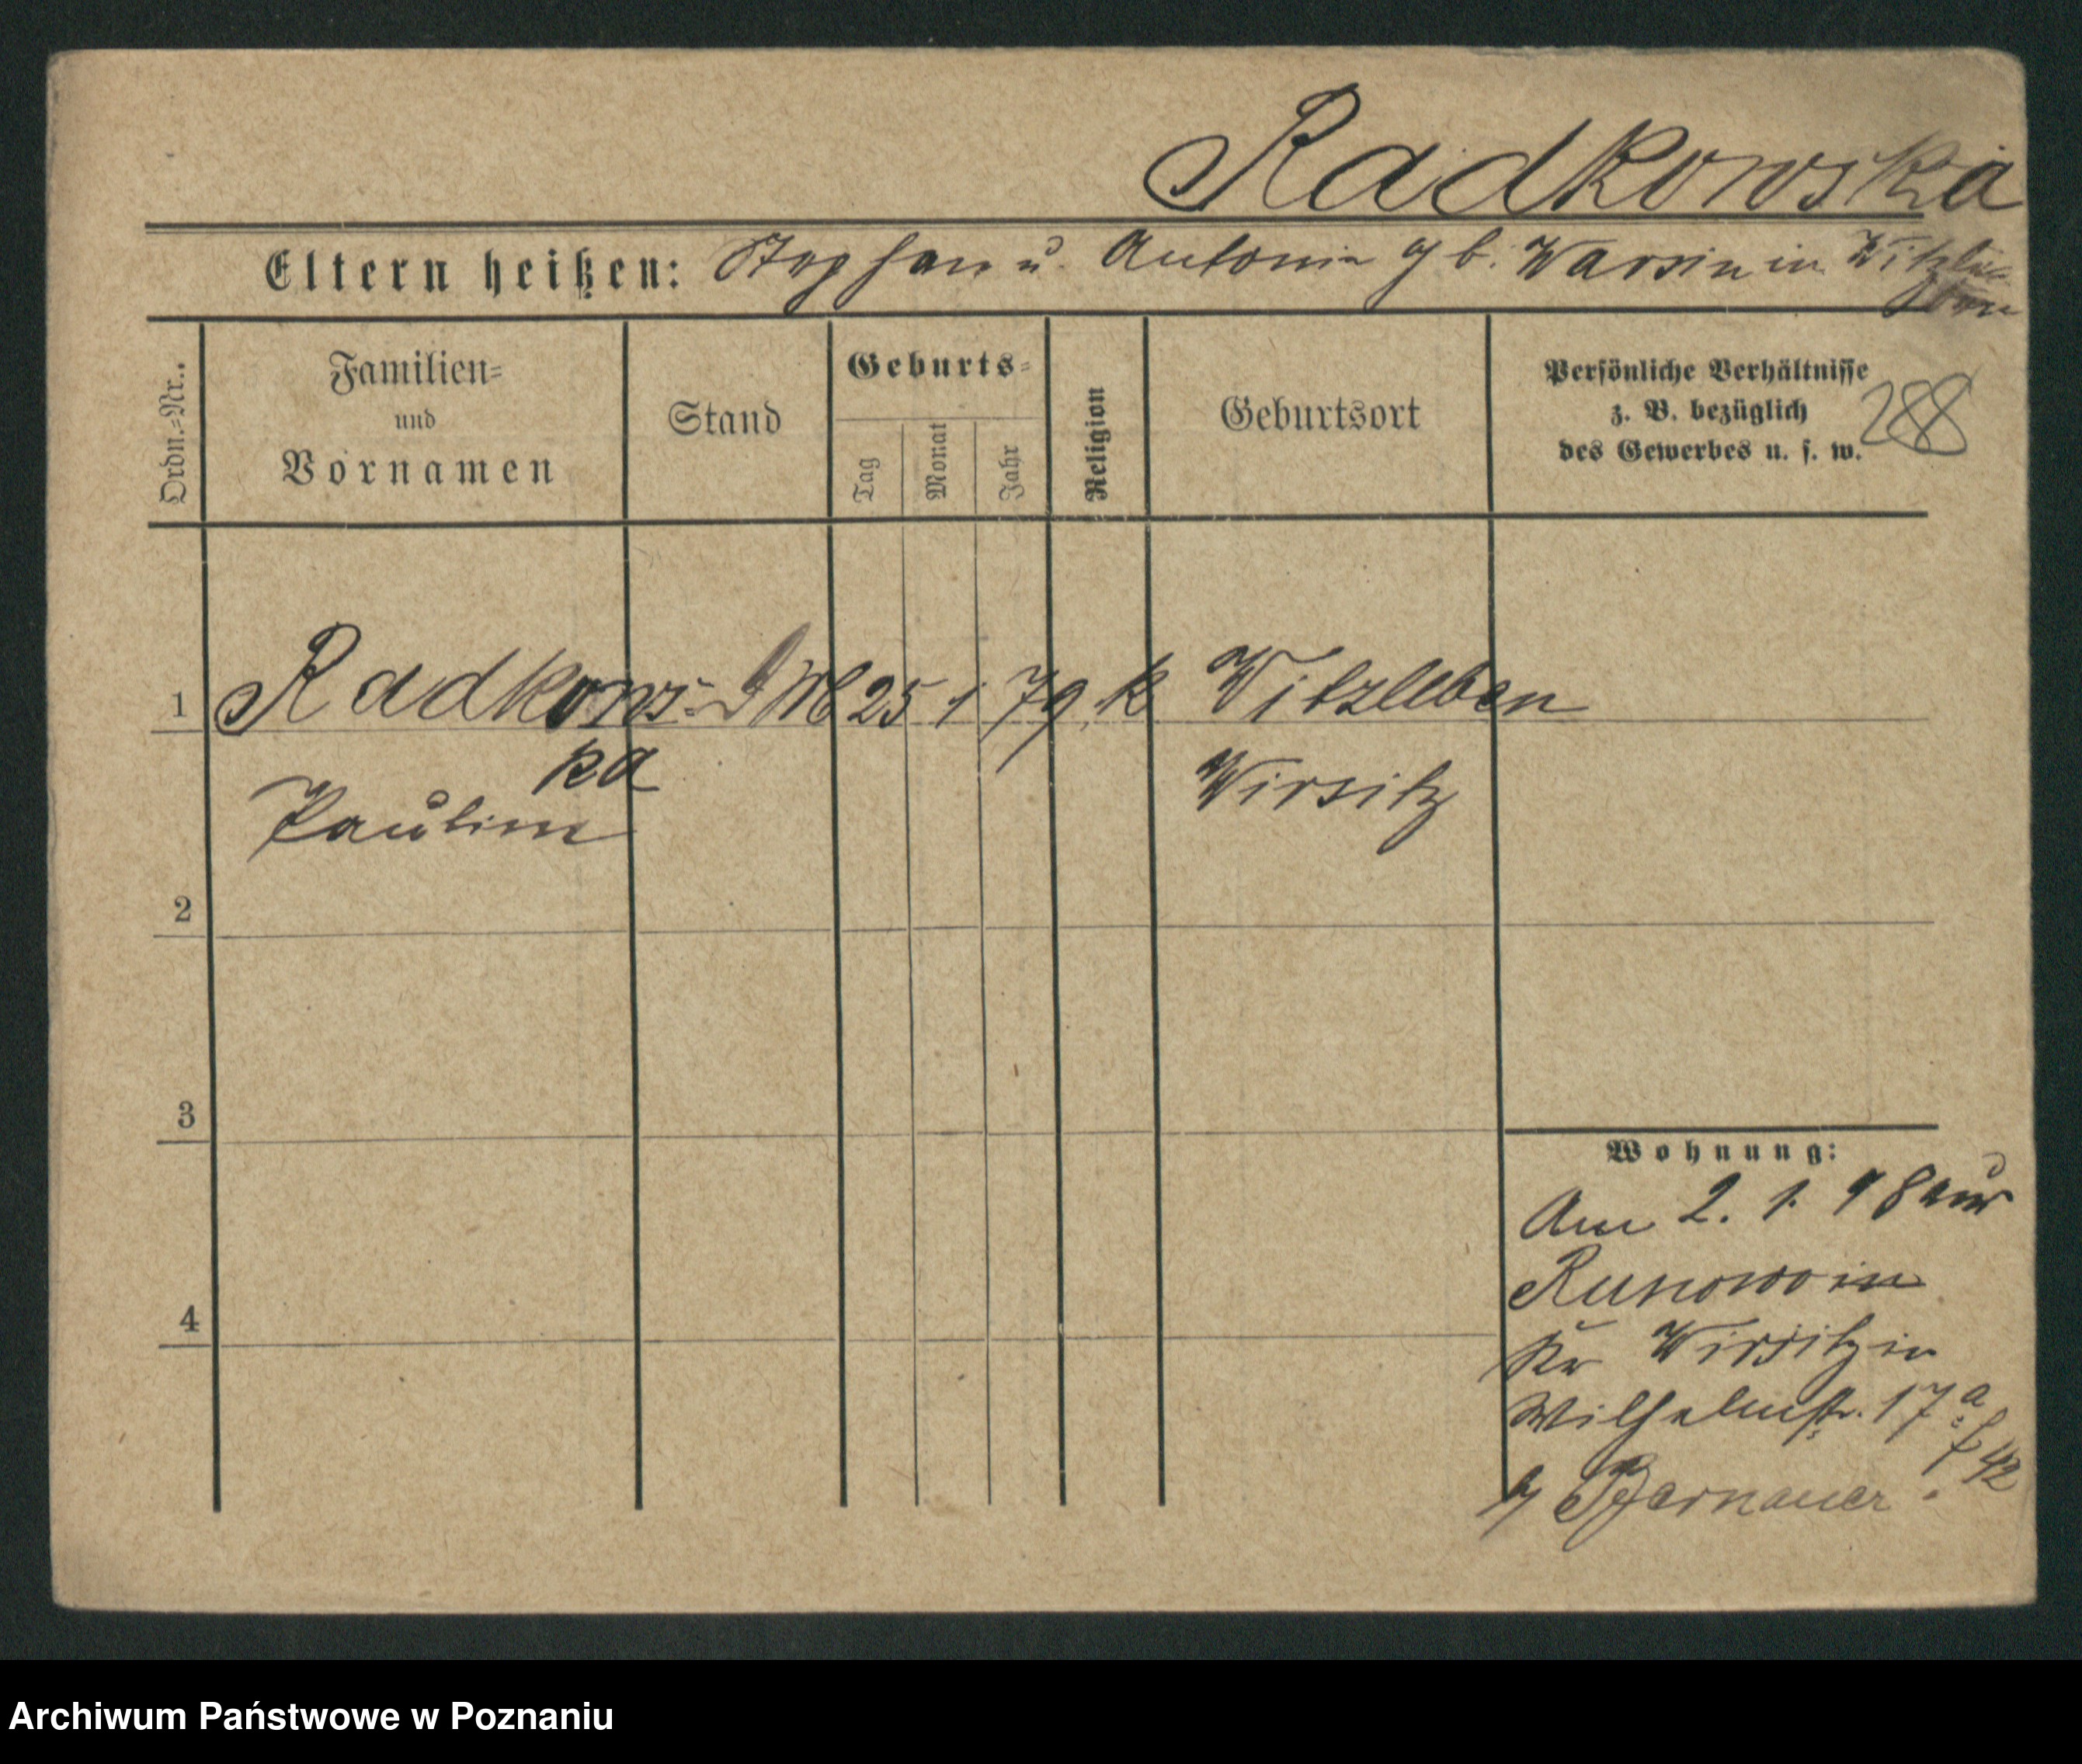 Radkowska
Eltern heißen: Stephan u. Antonie gb. Warsin in Witzle-
ben
Ordn.-Nr.
Familien-
und
Vornamen
Stand
Geburts-
Tag
Monat
Jahr
Religion
Geburtsort
Persönliche Verhältnisse
z. B. bezüglich
des Gewerbes u. s. w.
288
1 Radkows- DM 25 1 79 k Witzleben
ka
Wirsitz
Pauline
2
3
4
Wohnung:
Am 2. 1. 98 aus
Runowo in
Kr Wirsitz in
Wilhelmstr. 17a
42
Bernauer
Archiwum Państwowe w Poznaniu